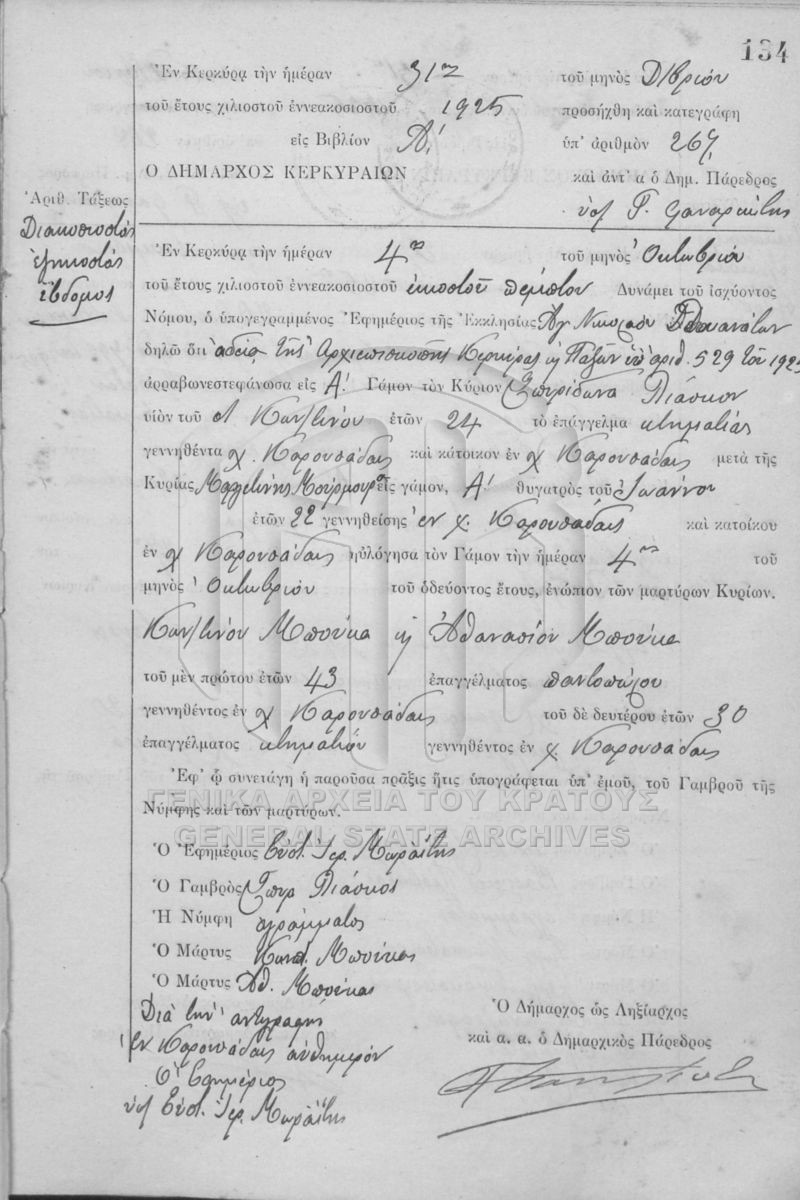 134
Ἐν Κερκύρᾳ τὴν ἡμέραν 31ην τοῦ μηνὸς Δ/βρίου
τοῦ ἔτους χιλιοστοῦ ἐννεακοσιοστοῦ 1925 προσήχθη καὶ κατεγράφη
εἰς Βιβλίον Α! ὑπ' ἀριθμὸν 267,
Ο ΔΗΜΑΡΧΟΣ ΚΕΡΚΥΡΑΙΩΝ καὶ ἀντ' α ὁ Δημ. Πάρεδρος
Ἀριθ. Τάξεως
Διακοσιοστὸς
ἑξηκοστὸς
ἕβδομος
ὑπ Γ.
Ἐν Κερκύρᾳ τὴν ἡμέραν 4ην τοῦ μηνὸς Ὀκτωβρίου
τοῦ ἔτους χιλιοστοῦ ἐννεακοσιοστοῦ εἰκοστοῦ πέμπτου Δυνάμει τοῦ ἰσχύοντος
Νόμου, ὁ ὑπογεγραμμένος Ἐφημέριος τῆς Ἐκκλησίας Ἁγ Νικολάου
δηλῶ ὅτι ἀδείᾳ τῆς Ἀρχιεπισκοπῆς Κερκύρας ἢ Παξῶν ὑπ' ἀριθ. 529 τοῦ 1925
ἀρραβωνεστεφάνωσα εἰς Α! Γάμον τὸν Κύριον Σπυρίδωνα Πιάσκον
υἱὸν τοῦ Κων/τίνου ἐτῶν 24 τὸ ἐπάγγελμα κτηματίας
γεννηθέντα χ. Καρουσάδαις καὶ κάτοικον ἐν χ Καρουσάδαις μετὰ τῆς
Κυρίας Μούρμουρα εἰς γάμον, Α! θυγατρὸς τοῦ Ἰωάννου
ἐτῶν 22 γεννηθείσης ἐν χ. Καρουσάδαις καὶ κατοίκου
ἐν χ Καρουσάδαις ηὐλόγησα τὸν Γάμον τὴν ἡμέραν 4ην τοῦ
μηνὸς Ὀκτωβρίου τοῦ ὁδεύοντος ἔτους, ἐνώπιον τῶν μαρτύρων Κυρίων.
Κων/τίνου Μπούκα ἢ Ἀθανασίου Μπούκα
τοῦ μὲν πρώτου ἐτῶν 43 ἐπαγγέλματος παντοπώλου
γεννηθέντος ἐν χ Καρουσάδαις τοῦ δὲ δευτέρου ἐτῶν 30
ἐπαγγέλματος κτηματίου γεννηθέντος ἐν χ Καρουσάδαις
Ἐφ' ᾧ συνετάγη ἡ παροῦσα πρᾶξις ἥτις ὑπογράφεται ὑπ' ἐμοῦ, τοῦ Γαμβροῦ τῆς
Νύμφης καὶ τῶν μαρτύρων.
ΓΕΝΙΚΑ ΑΡΧΕΙΑ ΤΟΥ ΚΡΑΤΟΥΣ
GENERAL STATE ARCHIVES
Ὁ Ἐφημέριος Εὐστ. Ἱερ. Μωραΐτης
Ὁ Γαμβρὸς Σπυρ Πιάσκος
Ἡ Νύμφη ἀγράμματος
Ὁ Μάρτυς Κωνστ. Μπούκας
Ὁ Μάρτυς Ἀθ. Μπούκας
Διὰ τὴν ἀντιγραφὴν
Ἐν Καρουσάδαις αὐθημερόν
Ὁ Ἐφημέριος
ὑπ Εὐστ. Ἱερ. Μωραΐτης
Ὁ Δήμαρχος ὡς Ληξίαρχος
καὶ α. α. ὁ Δημαρχικὸς Πάρεδρος